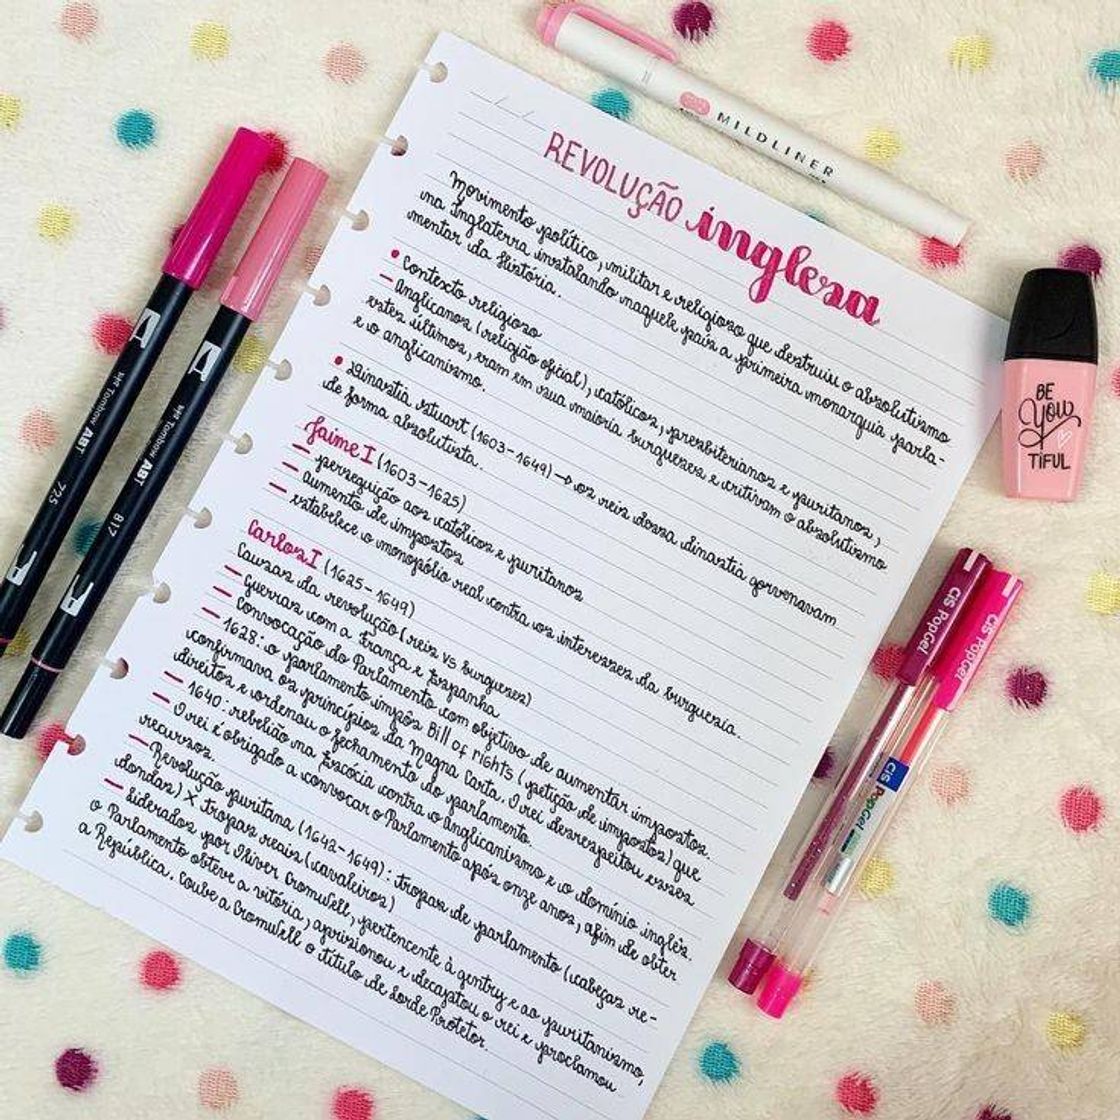 REVOLUÇÃO inglesa
Movimento político, militar e religioso que destruiu o absolutismo
na Inglaterra instalando naquele país a primeira monarquia parla-
mentar da história.
• Contexto religioso
– Anglicanos (religião oficial), católicos, presbiterianos e puritanos,
estes últimos, eram em sua maioria burgueses e critivam o absolutismo
e o anglicanismo.
• Dinastia Stuart (1603-1649) → os reis dessa dinastia governavam
de forma absolutista.
Jaime I (1603-1625)
– perseguição aos católicos e puritanos
– aumento de impostos
– estabelece o monopólio real contra os interesses da burguesia.
Carlos I (1625-1649)
Causas da revolução (reis vs burgueses)
– Guerras com a França e Espanha
– Convocação do Parlamento com objetivo de aumentar impostos.
– 1628: o parlamento impôs Bill of rights (petição de impostos) que
confirmava os princípios da Magna Carta. O rei desrespeitou esses
direitos e ordenou o fechamento do parlamento.
– 1640: rebelião na Escócia contra o Anglicanismo e o domínio inglês.
O rei é obrigado a convocar o Parlamento após onze anos, afim de obter
recursos.
– Revolução puritana (1642-1649): tropas de parlamento (cabeças re-
dondas) X tropas reais (cavaleiros)
– Liderados por Oliver Cromwell, pertencente à gentry e ao puritanismo,
o Parlamento obteve a vitória, aprisionou e decaptou o rei e proclamou
a República. Coube a Cromwell o título de Lorde Protetor.
MILDLINER
BE
YOU
TIFUL
Tombow ABT
725
Tombow ABT
817
CiS PopGel
CiS PopGel
CiS PopGel